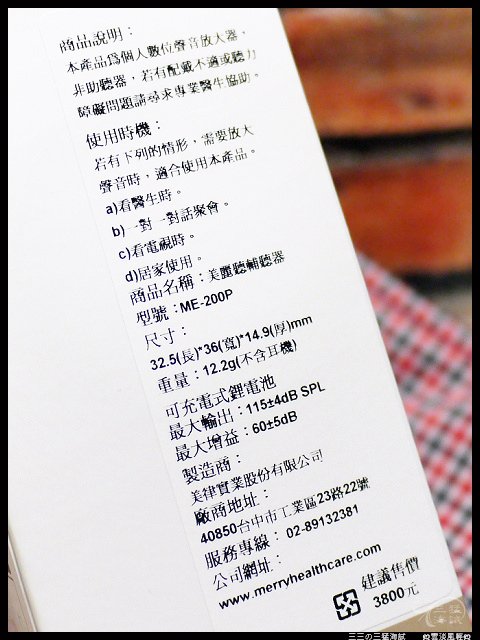 商品說明：
本產品為個人數位聲音放大器，
非助聽器，若有配戴不適或聽力
障礙問題請尋求專業醫生協助。
使用時機：
若有下列的情形，需要放大
聲音時，適合使用本產品。
a)看醫生時。
b)一對一對話聚會。
c)看電視時。
d)居家使用。
商品名稱：美麗聽輔聽器
型號：ME-200P
尺寸：
32.5(長)*36(寬)*14.9(厚)mm
重量：12.2g(不含耳機)
可充電式鋰電池
最大輸出：115±4dB SPL
最大增益：60±5dB
製造商：
美律實業股份有限公司
廠商地址：
40850台中市工業區23路22號
服務專線： 02-89132381
公司網址：
www.merryhealthcare.com
建議售價
3800元
三三の三猛海賊